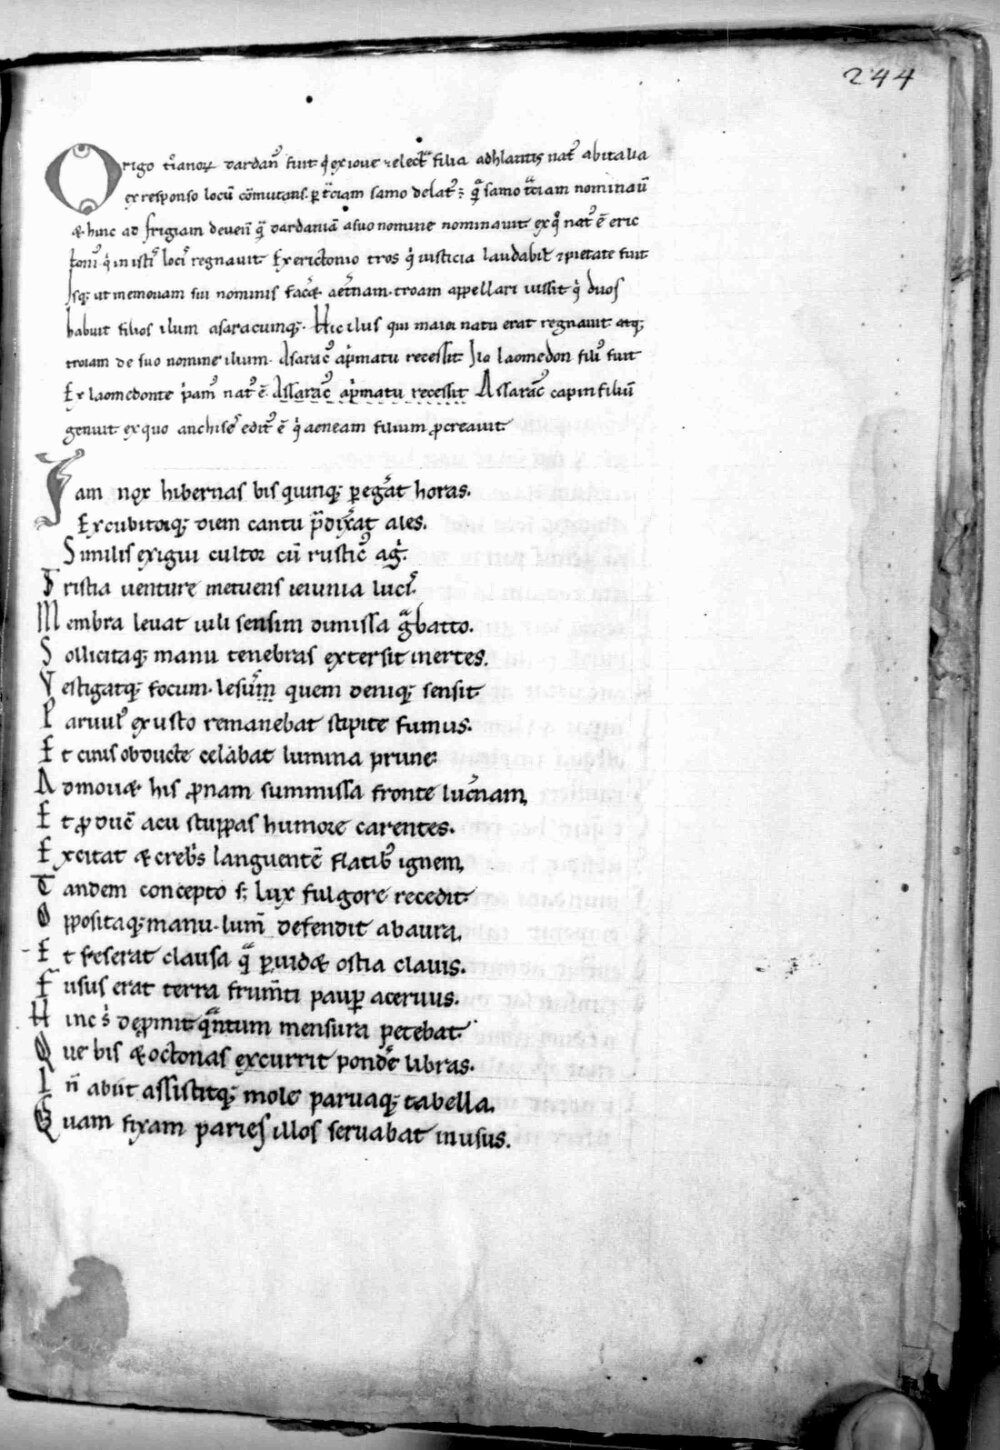 244
Origo t͛ianoꝝ dardan᷒ fuit q̇ ex ioue ⁊ elect͛ filia adhlantis nat᷒ ab italia
ex responso locū cōmutans ꝑ t͛ciam samo delat᷒ ÷ q̄ samo t͛ciam nominaū
& hinc ad frigiam deueñ q̄ dardaniā a suo nomine nominauit ex q̊ nat᷒ ē eric
toni᷒ q̇ in isti᷒ loci᷒ regnauit Ex erictonio tros q̇ iusticia laudabil̄ ⁊ pietate fuit
Isq; ut memoriam sui nominis fac͛& aet͛nam troam appellari iussit q̇ duos
habuit filios ilum asaracumq;. Hic ilus qui maior natu erat regnauit atq;
troiam de suo nomine ilium. Asarac᷒ ap̍matu recessit Ilo laomedon fili᷒ fuit
Ex laomedonte p̍am᷒ nat᷒ ē. Assarac᷒ ap̍matu recessit Assarac᷒ capin filiū
genuit ex quo anchise᷒ edit᷒ ē q̇ aeneam filium ꝓcreauit
Iam nox hibernas bis quinq; peg̃at horas.
Excubitorq; diem cantu p̄dix͛at ales.
Similis exigui cultor cū rustic᷒ ag̍.
Tristia venture metuens ieiunia luci᷒.
Membra leuat uili sensim dimissa g̃batto.
Sollicitaq; manu tenebras extersit inertes.
Vestigatq; focum. lesum̄ quem deniq; sensit
Paruul᷒ exusto remanebat stipite fumus.
Et cinis obducte celabat lumina prune
Admou& his ꝓnam summissa fronte luc͛nam,
Et ꝓducē acu stuppas humore carentes.
Excitat & creb̍s languentē flatib᷒ ignem,
Tandem concepto s; lux fulgore recedit
Oppositaq; manu. lum̄ defendit ab aura,
Et reserat clausa q̄ ꝑuid& ostia clauis.
Fusus erat terra frum̄ti pauꝑ aceruus.
Hinc s̍ dep̍mit q̃ntum mensura petebat
Que bis & octonas excurrit ponde͛ libras.
In̄ abiit assistitq; mole paruaq; tabella.
Quam fixam paries illos seruabat in usus.